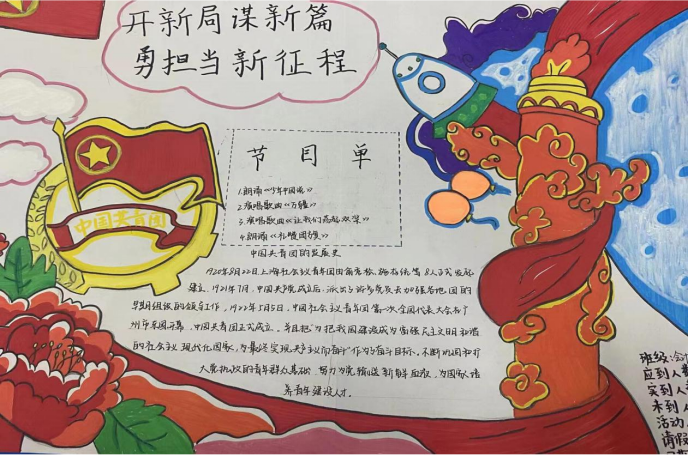 开新局谋新篇
勇担当新征程
中国共青团
节目单
1.朗诵《少年中国说》
2.演唱歌曲《万疆》
3.演唱歌曲《让我们荡起双桨》
4.朗诵《礼赞团旗》
中国共青团的发展史
1920年8月22日,上海社会主义青年团由俞秀松、施存统等8人正式发起
建立。1921年7月,中国共产党成立后,派出
早期组织的领导工作,1922年5月5日,中国社会主义青年团第一次全国代表大会在广
州市东园开幕,中国共青团正式成立。并且把为把我国建设成为富强民主文明和谐
的社会主义现代化国家,为最终实现共产主义而奋斗作为奋斗目标。不断巩固和扩
大党执政的青年群众基础,努力为党输送新鲜血液,为国家培
养青年建设人才。
班级:
应到人
实到人
未到人
活动
请假